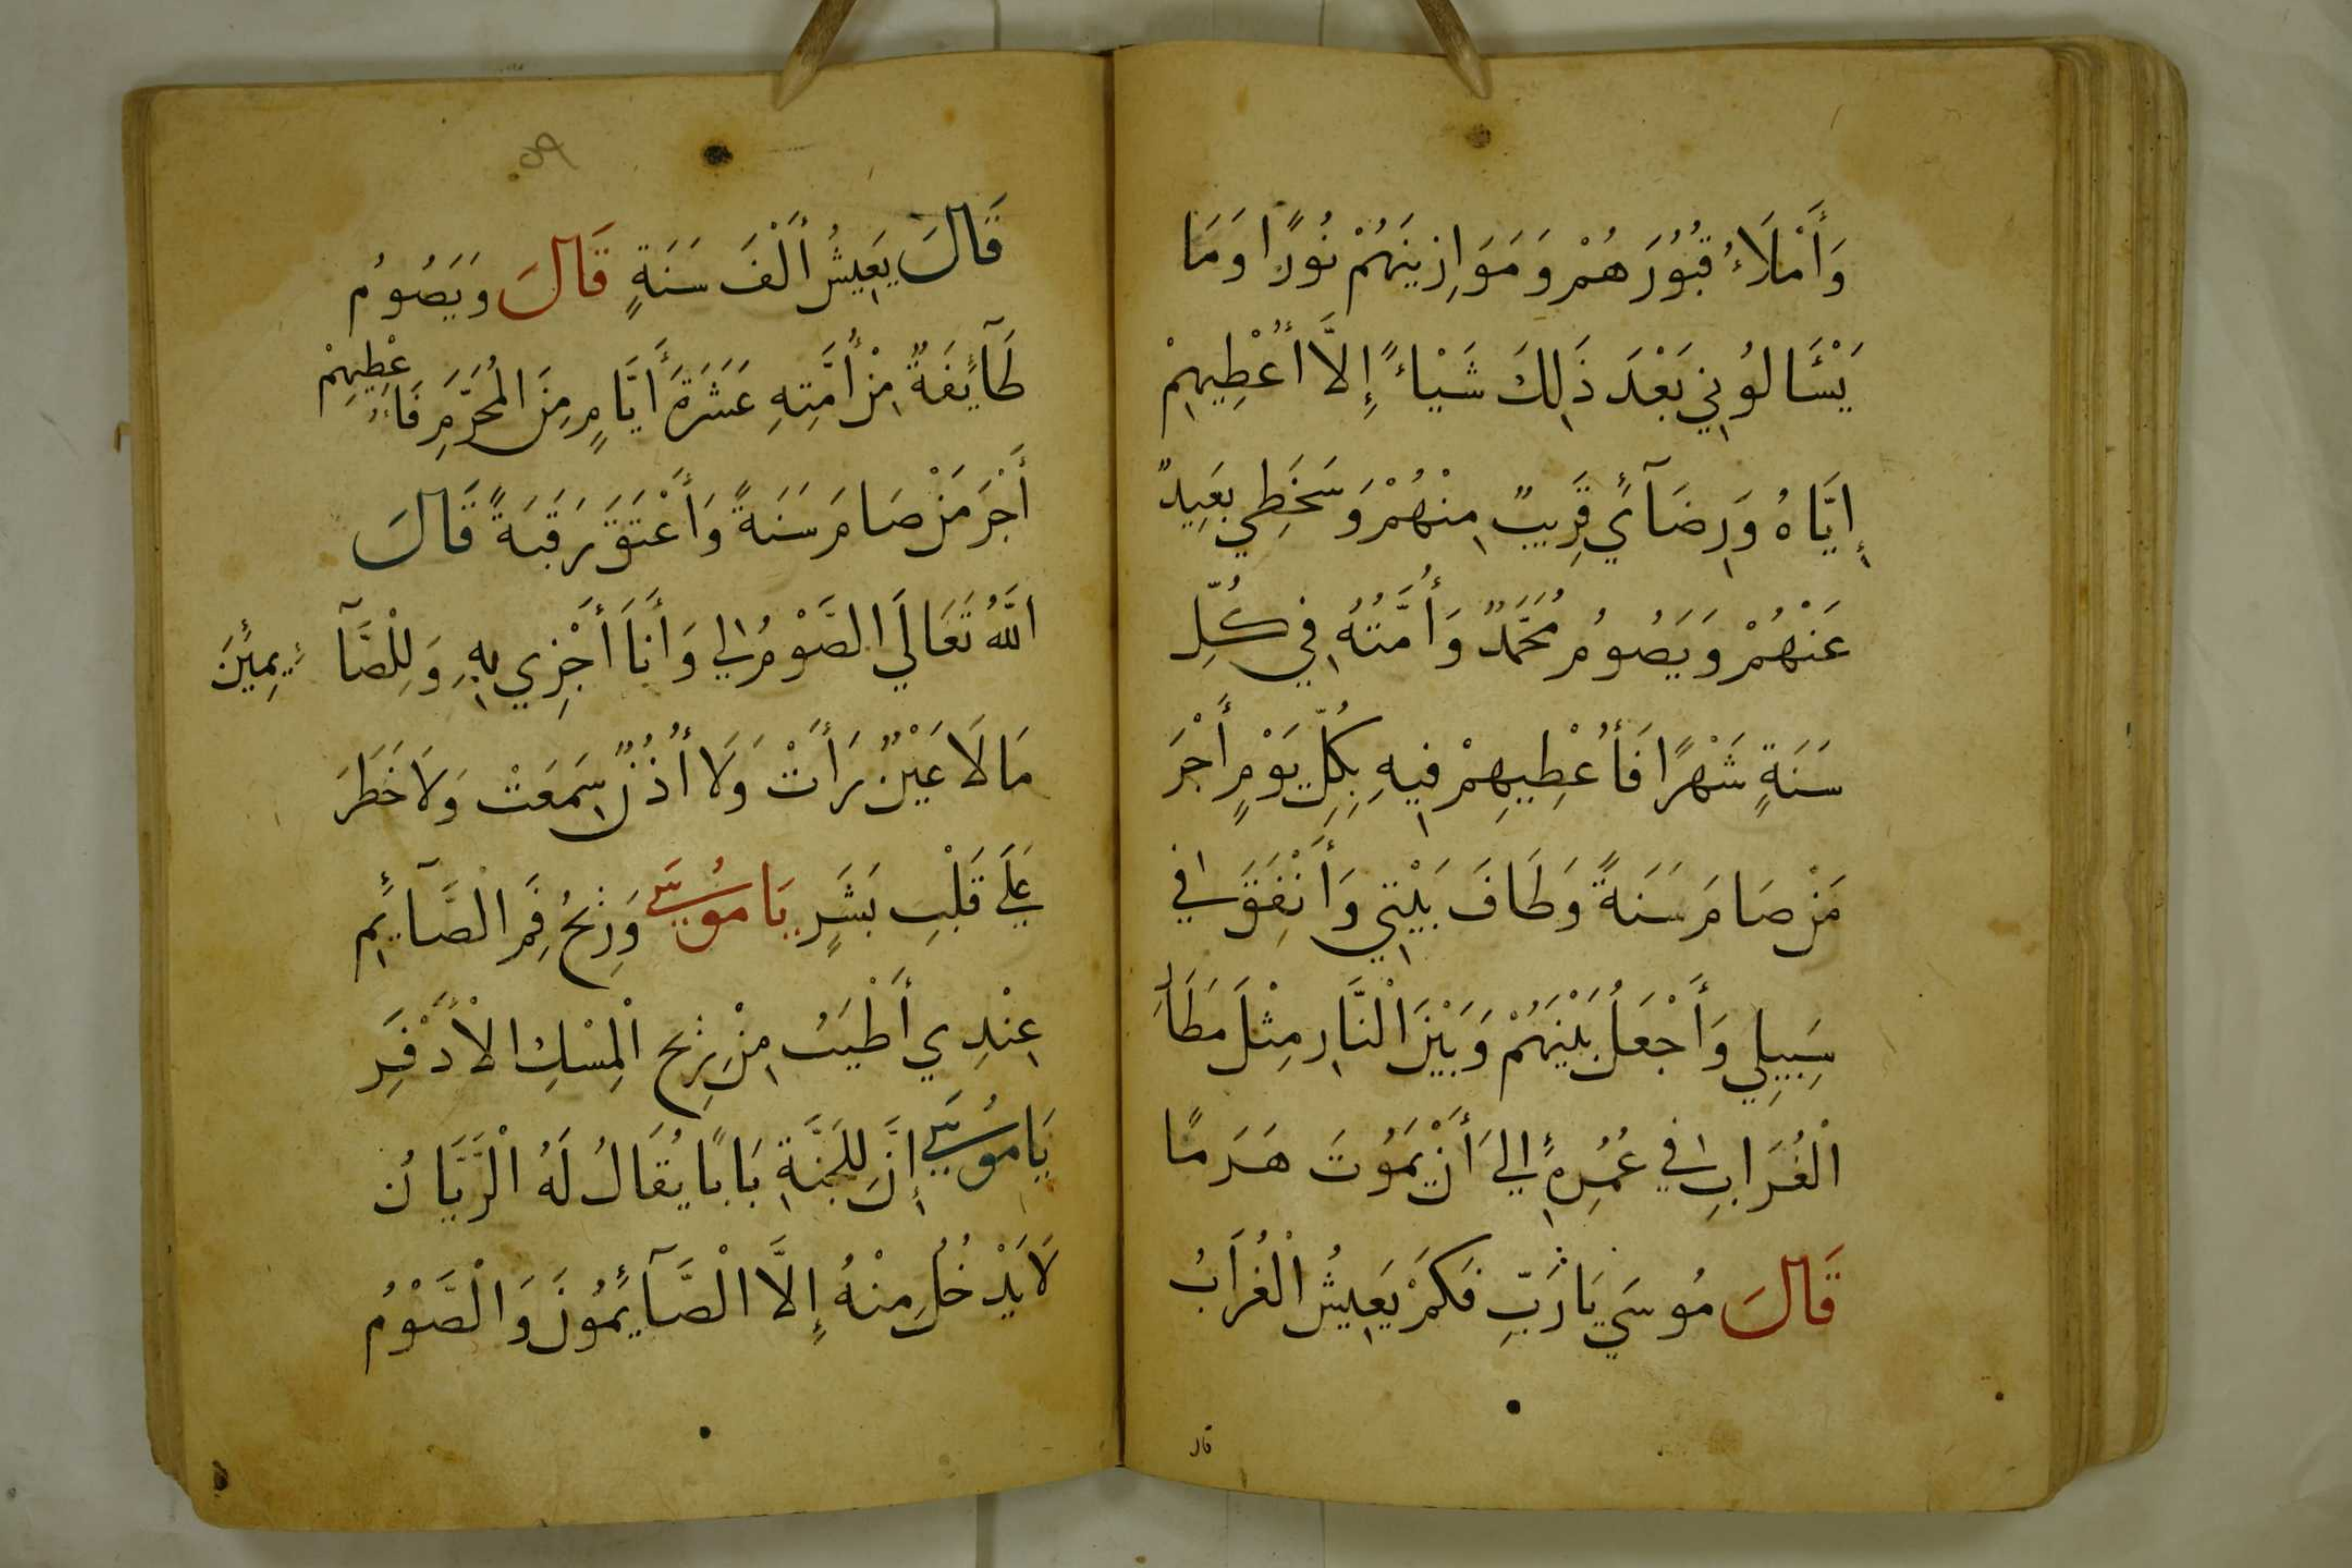 وَأَمْلَاءُ قُبُورَهُمْ وَمَوَازِينَهُمْ نُورًا وَمَا
يَسْئَالُونِي بَعْدَ ذَلِكَ شَيْاءً إِلَّا أُعْطِيهِمْ
إِيَّاهُ وَرِضَآئِي قَرِيبٌ مِنْهُمْ وَسَخَطِي بَعِيدٌ
عَنْهُمْ وَيَصُومُ مُحَمَّدٌ وَأُمَّتُهُ فِي كُلِّ
سَنَةٍ شَهْرًا فَأُعْطِيهِمْ فِيهِ بِكُلِّ يَوْمٍ أَجْرَ
مَنْ صَامَ سَنَةً وَطَافَ بَيْتِي وَأَنْفَقَ فِي
سَبِيلِي وَأَجْعَلُ بَيْنَهُمْ وَبَيْنَ الْنَّارِ مِثْلَ مَطَارَ
الْغُرَابِ فِي عُمُرِهِ إِلَي أَنْ يَمُوتَ هَرَمًا
قَالَ مُوسَي يَا رَبِّ فَكَمْ يَعِيشُ الْغُرَابُ
قال
٥٩
قَالَ يَعِيشُ أَلْفَ سَنَةٍ قَالَ وَيَصُومُ
طَآئِفَةٌ مِنْ أُمَّتِهِ عَشَرَةَ أَيَّامٍ مِنَ الْمُحَرَّمِ فَأُعْطِيهِمْ
أَجْرَ مَنْ صَامَ سَنَةً وَأَعْتَقَ رَقَبَةً قَالَ
اللَّهُ تَعَالَي الصَّوْمُ لِي وَأَنَا أَجْزِي بِهِ وَلِلْصَّآئِمِينَ
مَا لَا عَيْنٌ رَأَتْ وَلَا أُذُنٌ سَمِعَتْ وَلَا خَطَرَ
عَلَي قَلْبِ بَشَرٍ يَا مُوسَي وَرِيحُ فَمِ الْصَّآئِمِ
عِنْدِي أَطْيَبُ مِنْ رِيحِ الْمِسْكِ الْأَذْفَرِ
يَا مُوسَي إِنَّ لِلْجَنَّةِ بَابًا يُقَالُ لَهُ الْرَّيَّانُ
لَا يَدْخُلُ مِنْهُ إِلَّا الْصَّآئِمُونَ وَالْصَّوْمُ